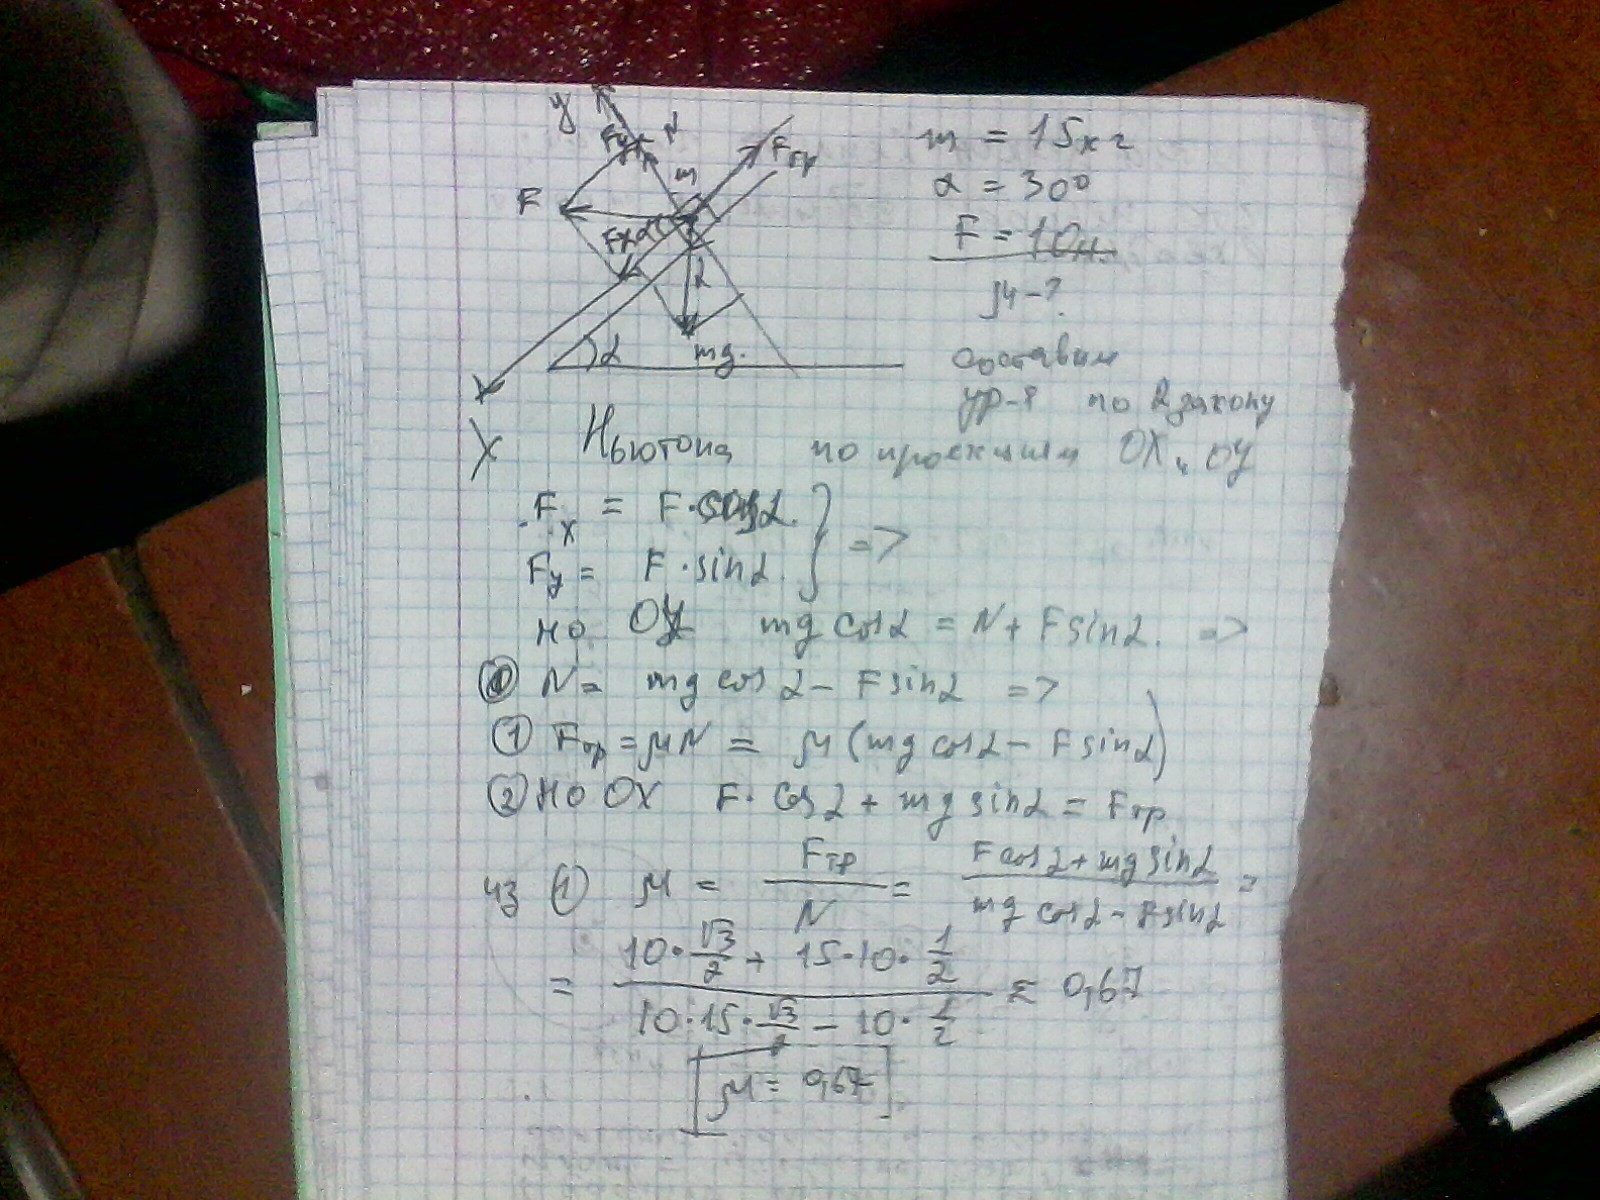 y
Fy N
m
Fтр
F
Fx α
α
α
mg.
X
m = 15кг
α = 30°
F = 10н
μ-?
составим
ур-я по 2 закону
Ньютона по проекциям OX и OY
Fx = F·cosα
Fy = F·sinα } =>
на OY mg cosα = N + F sinα. =>
N = mg cosα - F sinα =>
① Fтр = μN = μ(mg cosα - F sinα)
② на OX F·cosα + mg sinα = Fтр
из ① μ = Fтр / N = F cosα + mg sinα / mg cosα - F sinα =
= 10·√3/2 + 15·10·1/2 / 10·15·√3/2 - 10·1/2 ≈ 0,67
μ = 0,67